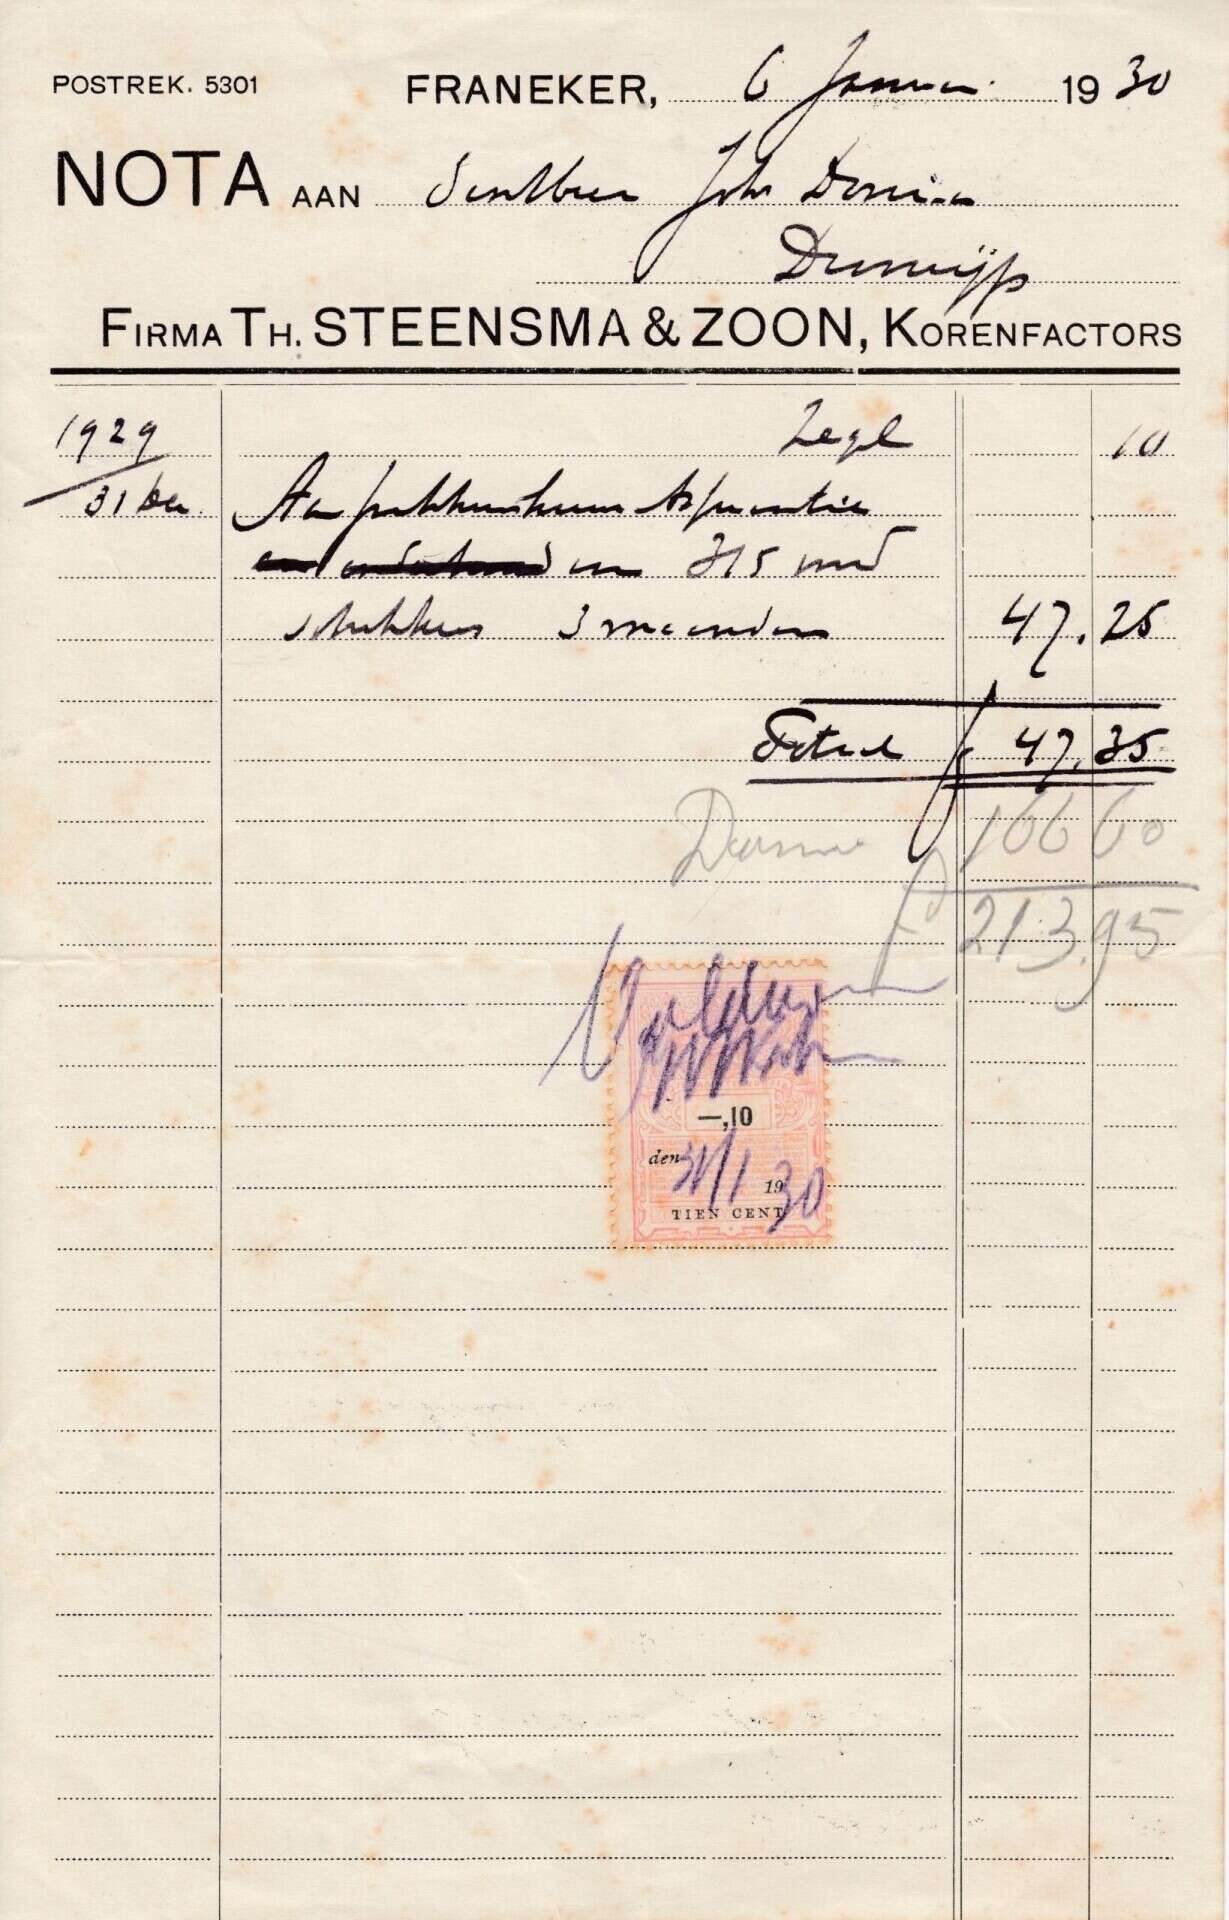 POSTREK. 5301
FRANEKER, 6 Januari 1930
NOTA AAN den Heer Joh Dorn
Dronrijp
FIRMA TH. STEENSMA & ZOON, KORENFACTORS
1929 Zegel 10
31 Dec Aan pakhuishuur
315 mud
3 maanden 47.25
Totaal f 47.35
166 60
f 213.95
Voldaan
—,10
den 31/1 1930
TIEN CENT